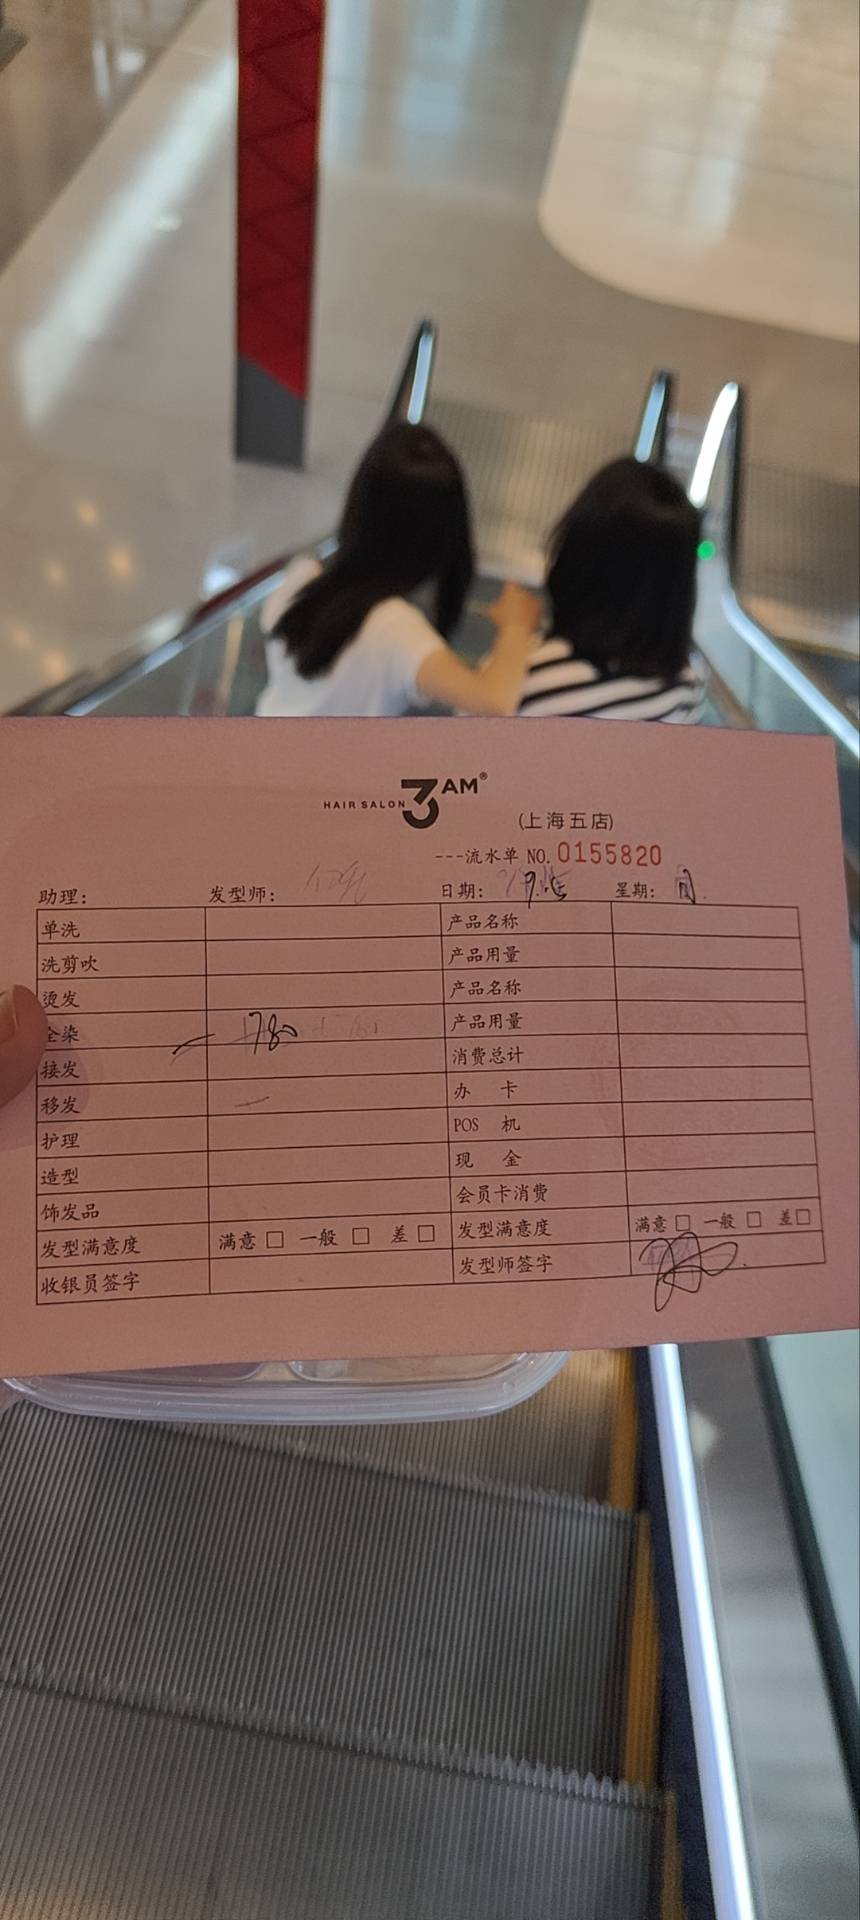 HAIR SALON 3AM®
(上海五店)
---流水单 NO. 0155820
助理: 发型师: 日期: 星期:
单洗 产品名称
洗剪吹 产品用量
烫发 产品名称
全染 780 产品用量
接发 消费总计
移发 办 卡
护理 POS 机
造型 现 金
饰发品 会员卡消费
发型满意度 满意 □ 一般 □ 差 □ 发型满意度 满意 □ 一般 □ 差 □
收银员签字 发型师签字